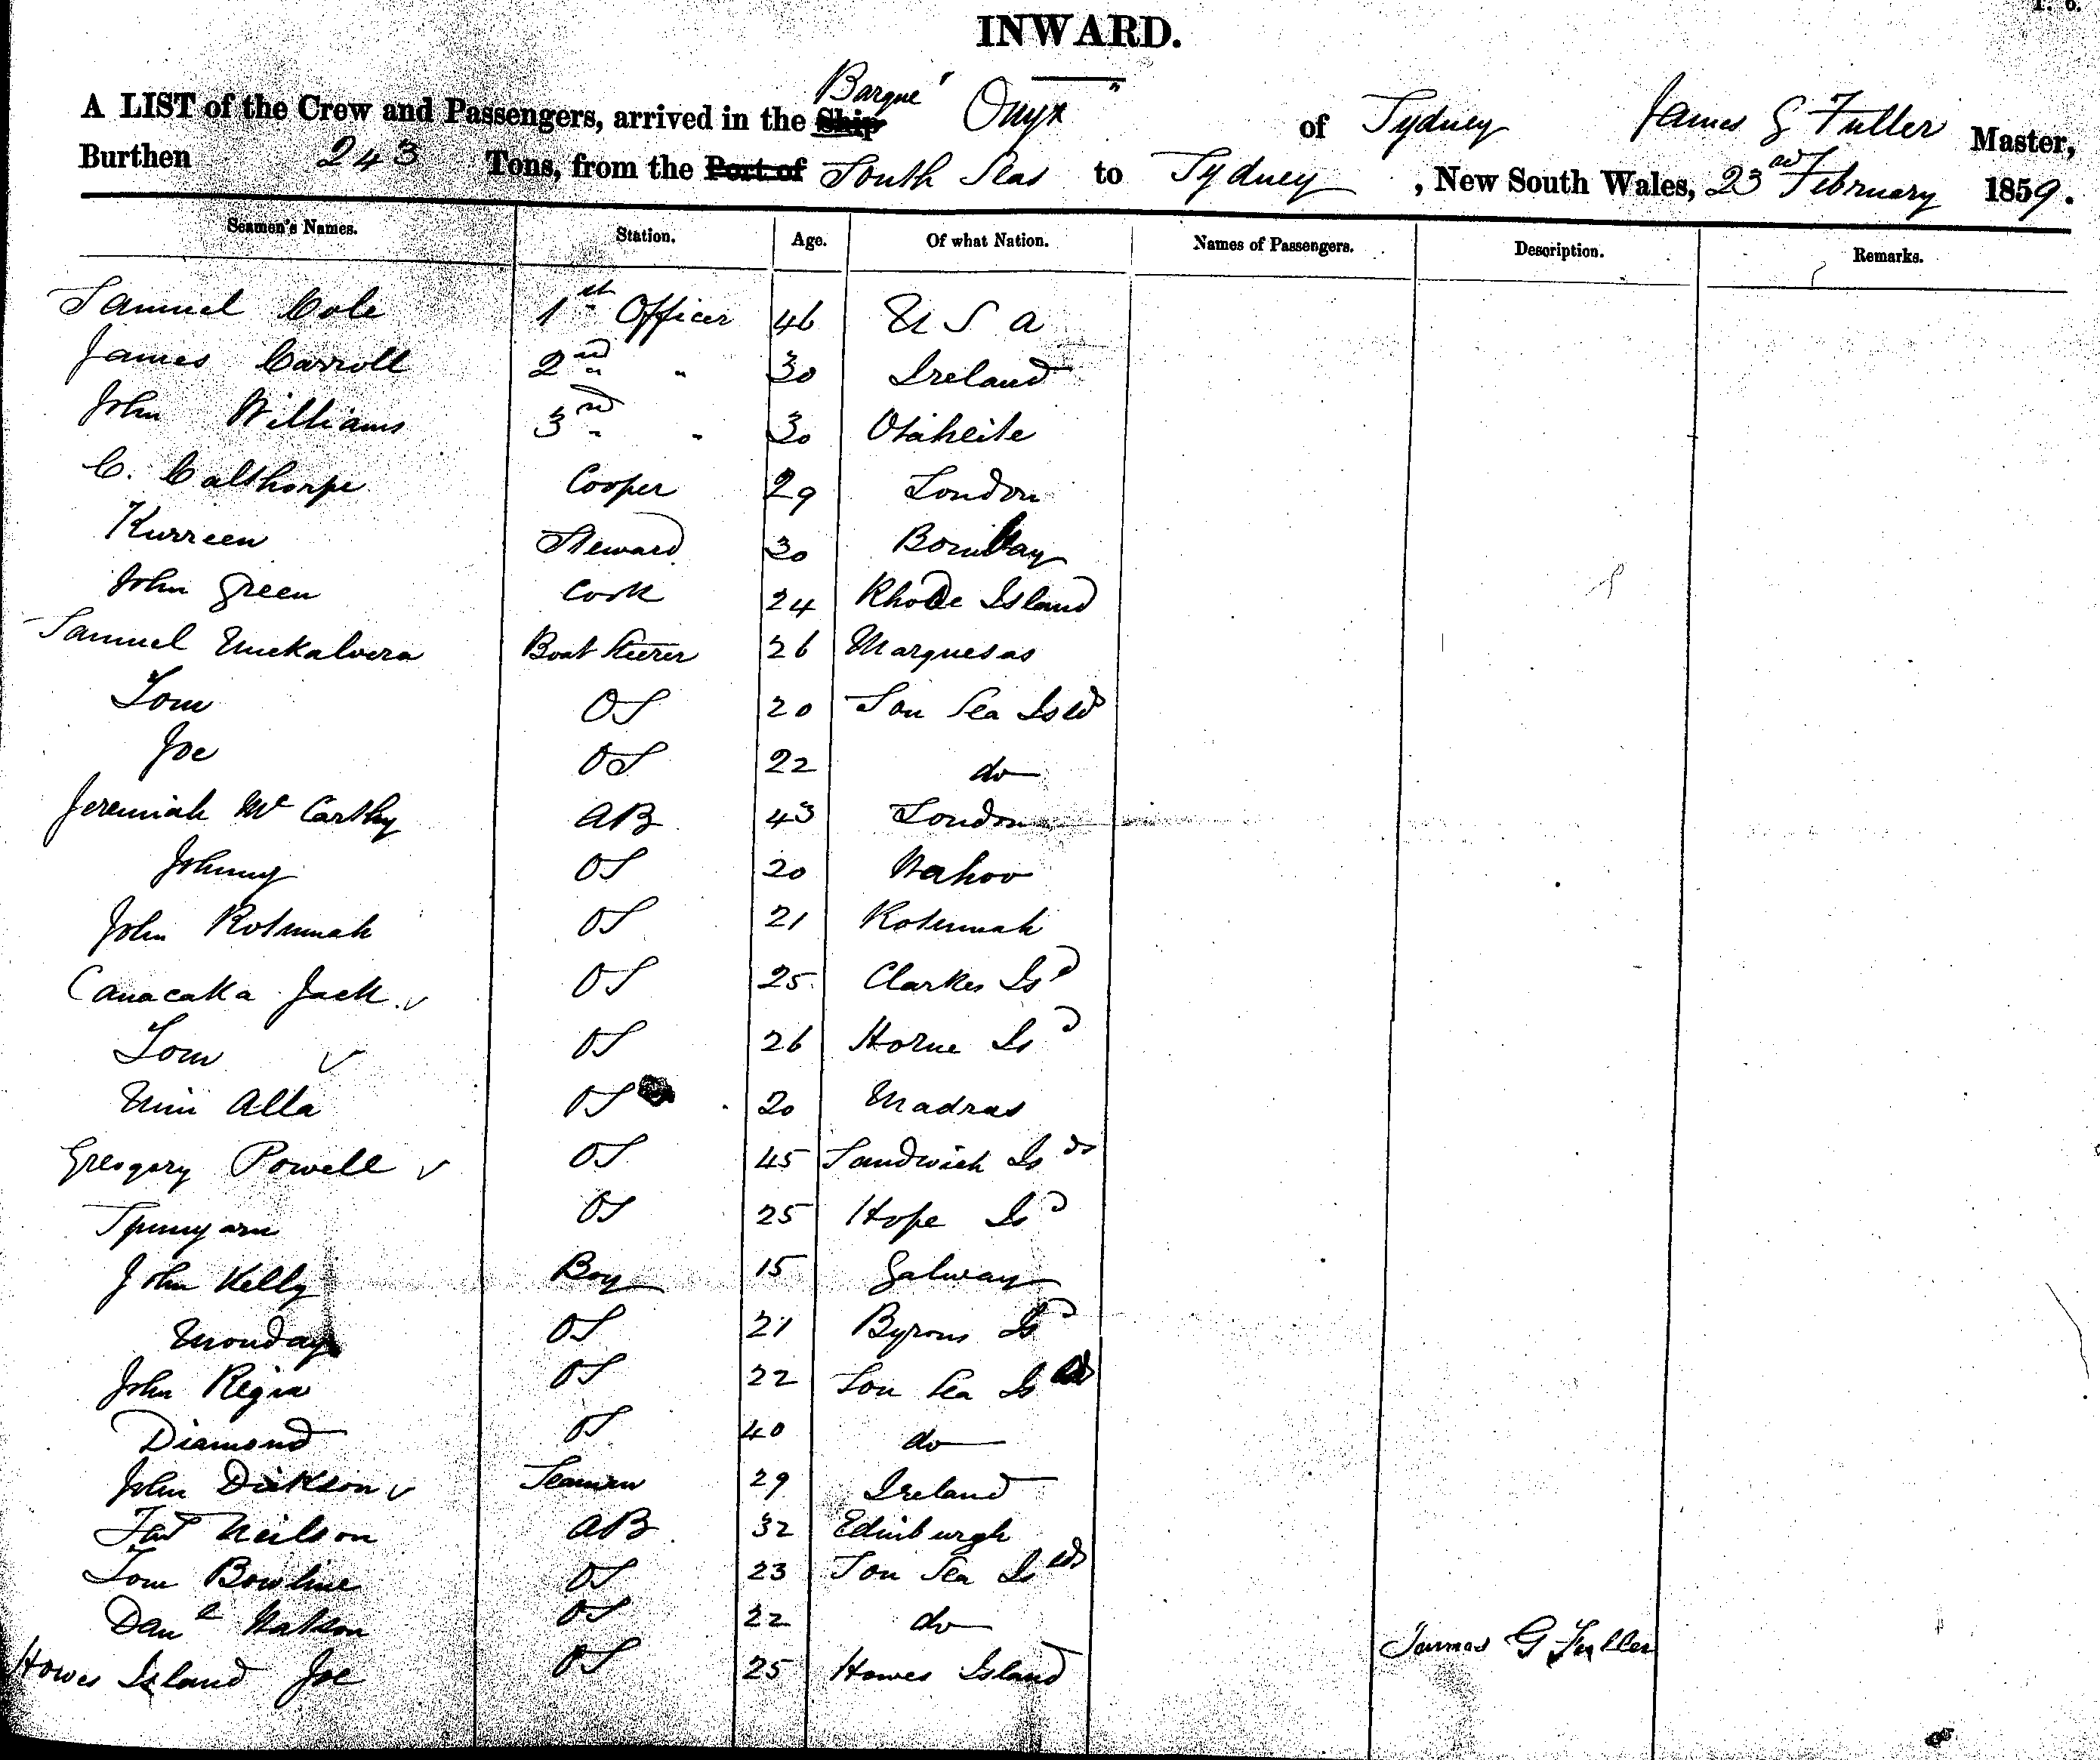 INWARD.
A LIST of the Crew and Passengers, arrived in the Ship Barque "Onyx" of Sydney James G Fuller Master,
Burthen 243 Tons, from the Port of South Seas to Sydney, New South Wales, 23rd February 1859.
Seamen's Names. Station. Age. Of what Nation. Names of Passengers. Description. Remarks.
Samuel Cole 1st Officer 46 U S A
James Carroll 2nd " 30 Ireland
John Williams 3rd " 30 Otaheite
C. Calthorpe Cooper 29 London
Kurreen Steward 30 Bombay
John Green Cook 24 Rhode Island
Samuel Boat Steerer 26 Marquesas
Tom OS 20 Sou Sea Islds
Joe OS 22 do
Jeremiah Mc Carthy AB 43 London
Johnny OS 20 Wahoo
John Rotumah OS 21 Rotumah
Canacaka Jack OS 25 Clarkes Isd
Tom OS 26 Horne Isd
Alla OS 20 Madras
Greogory Powell OS 45 Sandwich Isds
Spunyarn OS 25 Hope Isd
John Kelly Boy 15 Galway
Monday OS 21 Byrons Isd
John Regia OS 22 Sou Sea Is
Diamond OS 40 do
John Dickson Seaman 29 Ireland
Neilson AB 32 Edinburgh
Tom Bowline OS 23 Sou Sea Islds
Danl Watson OS 22 do
Howes Island Joe OS 25 Howes Island
James G Fuller